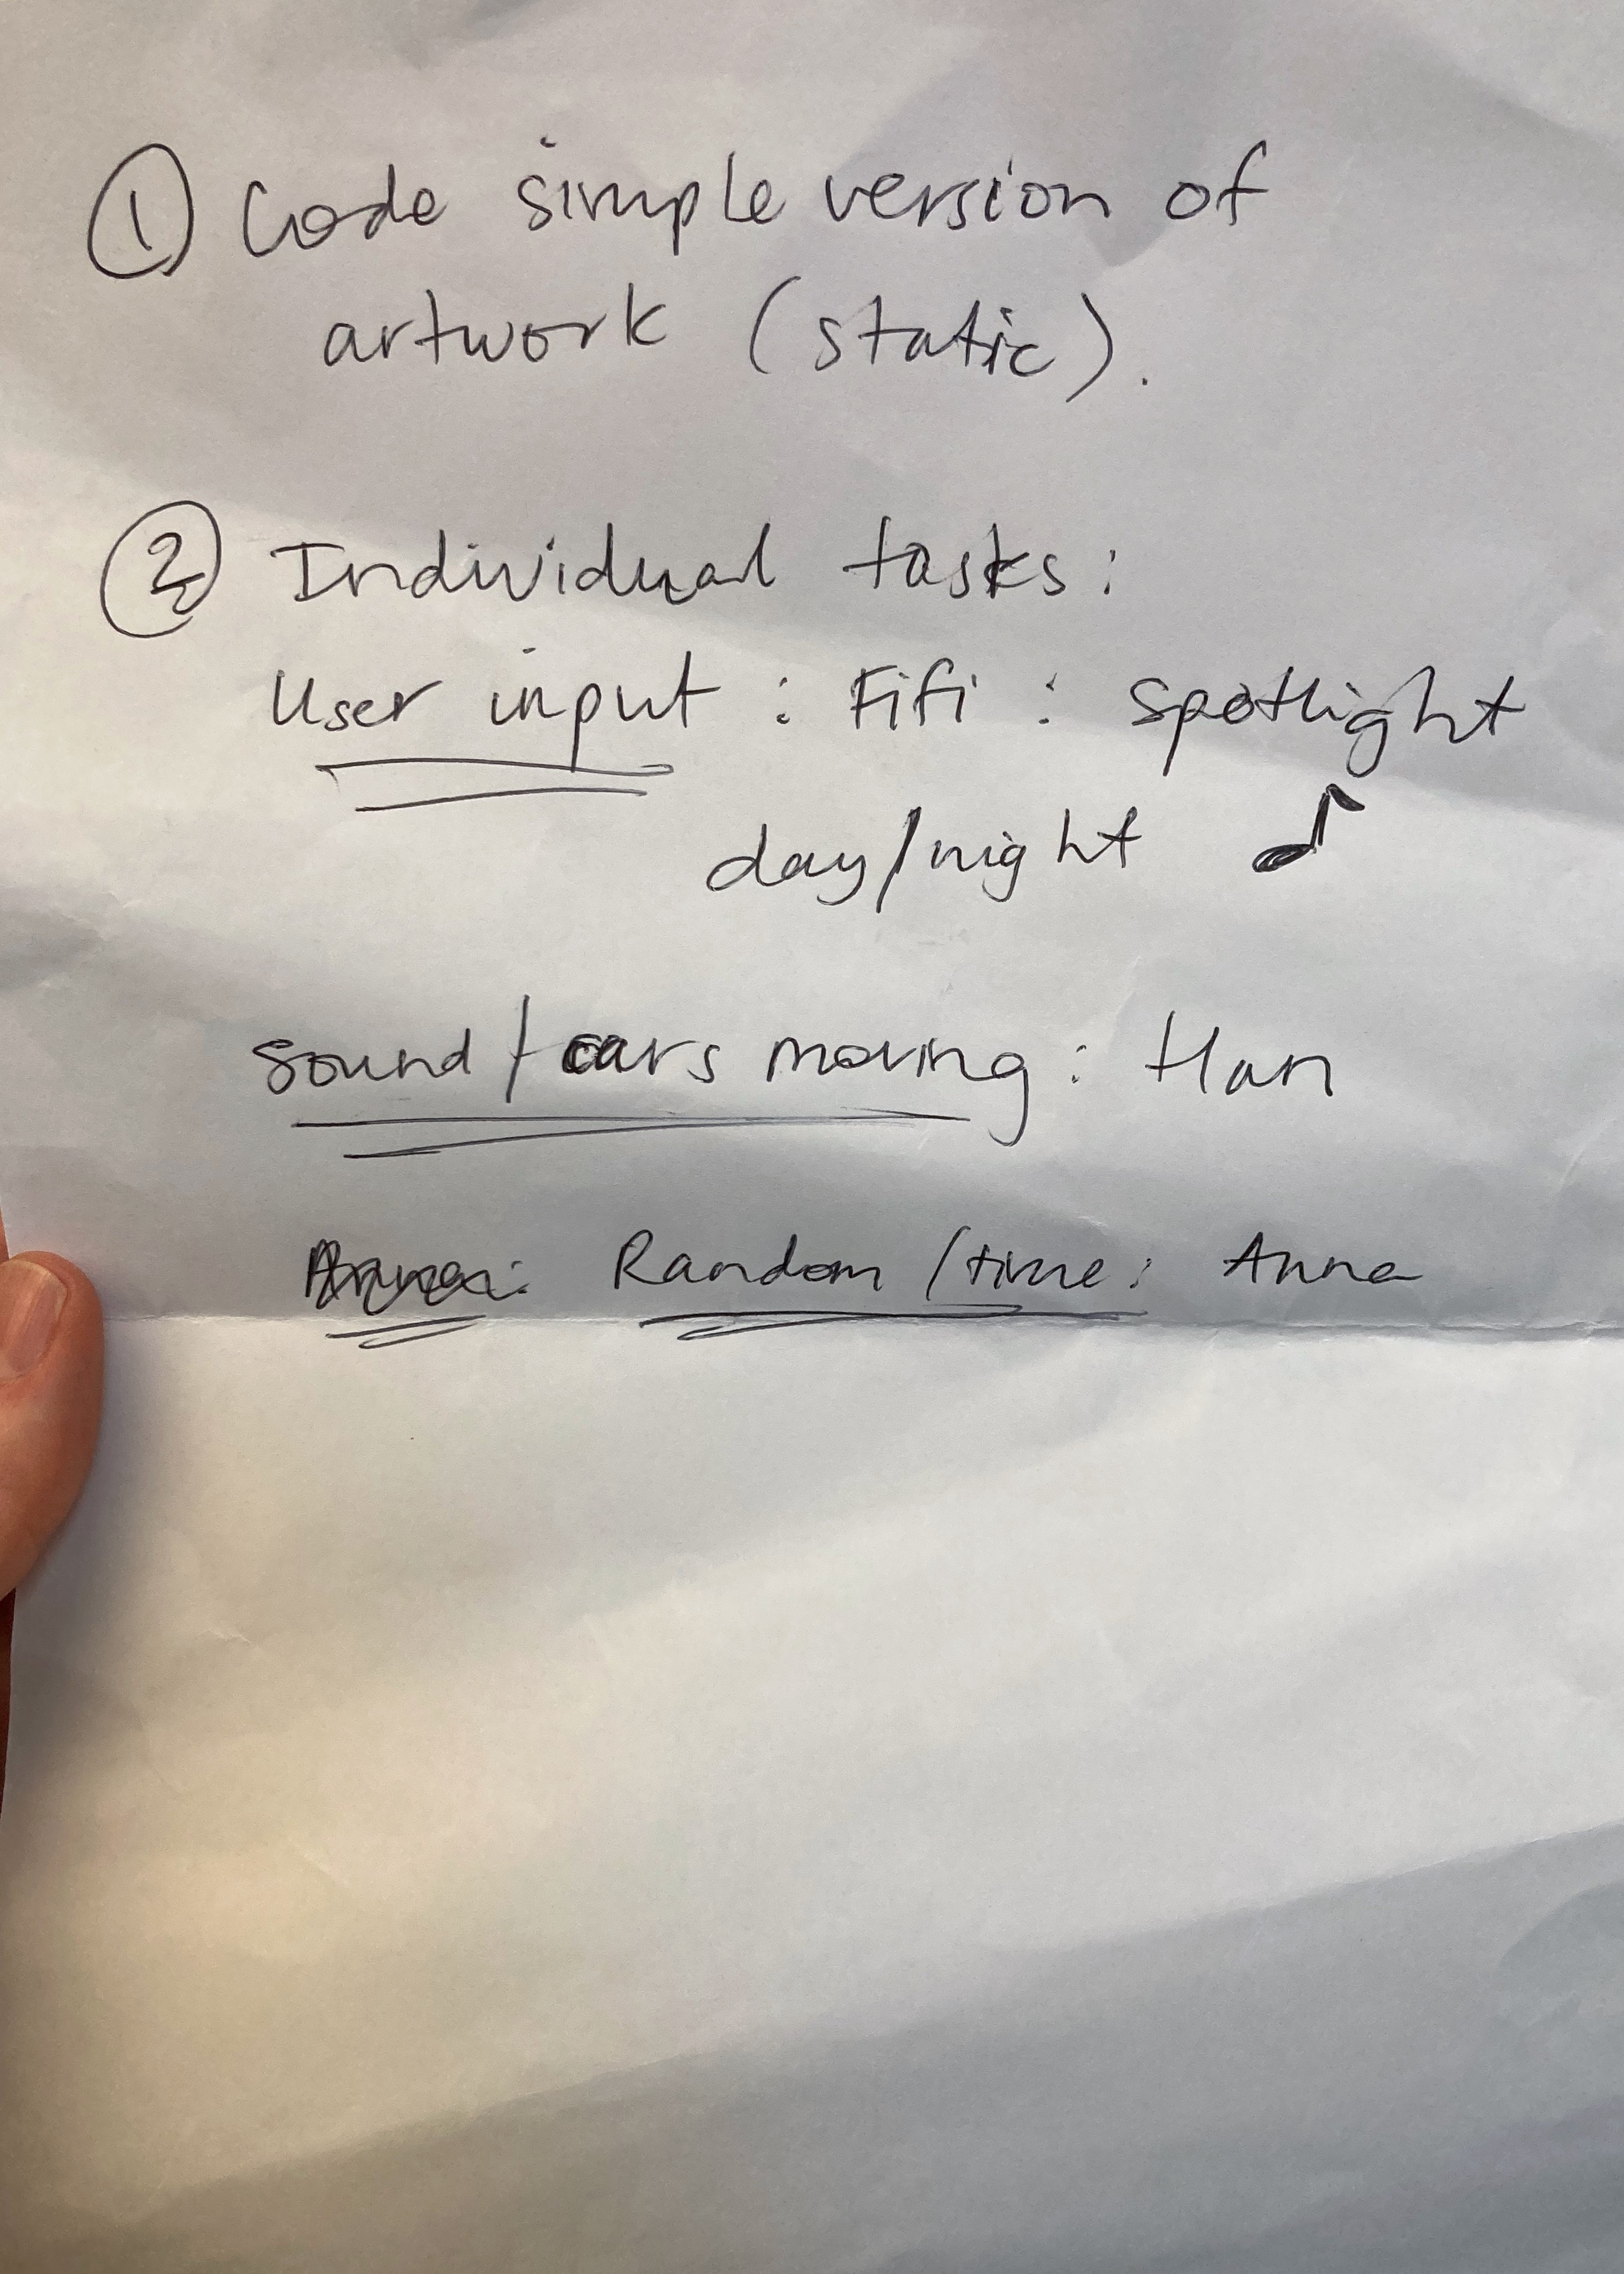 ① Code simple version of
artwork (static).
② Individual tasks:
User input : Fifi : spotlight
day/night ♪
sound / cars moving : Han
Random / time : Anna